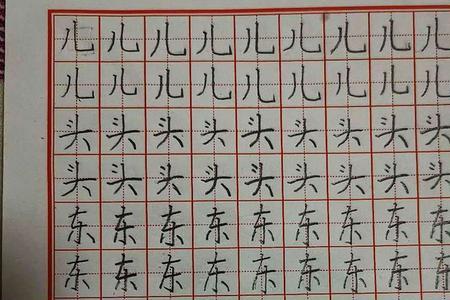 儿儿儿儿儿儿儿儿儿
儿儿儿儿儿儿儿儿儿
头头头头头头头头头
头头头头头头头头头
东东东东东东东东东
东东东东东东东东东